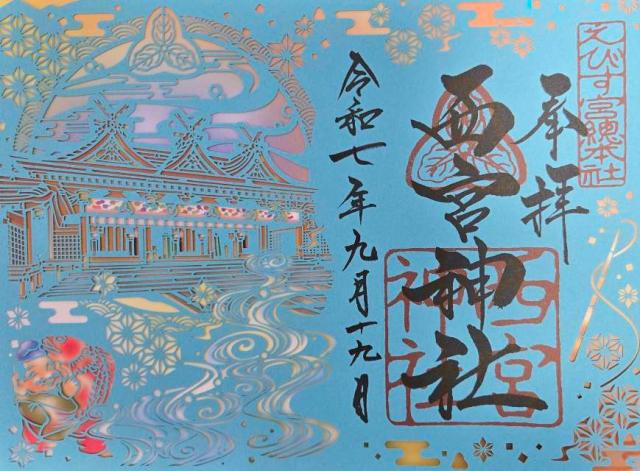 えびす宮總本社
奉拝
西宮神社
西宮神社
令和七年九月十九日